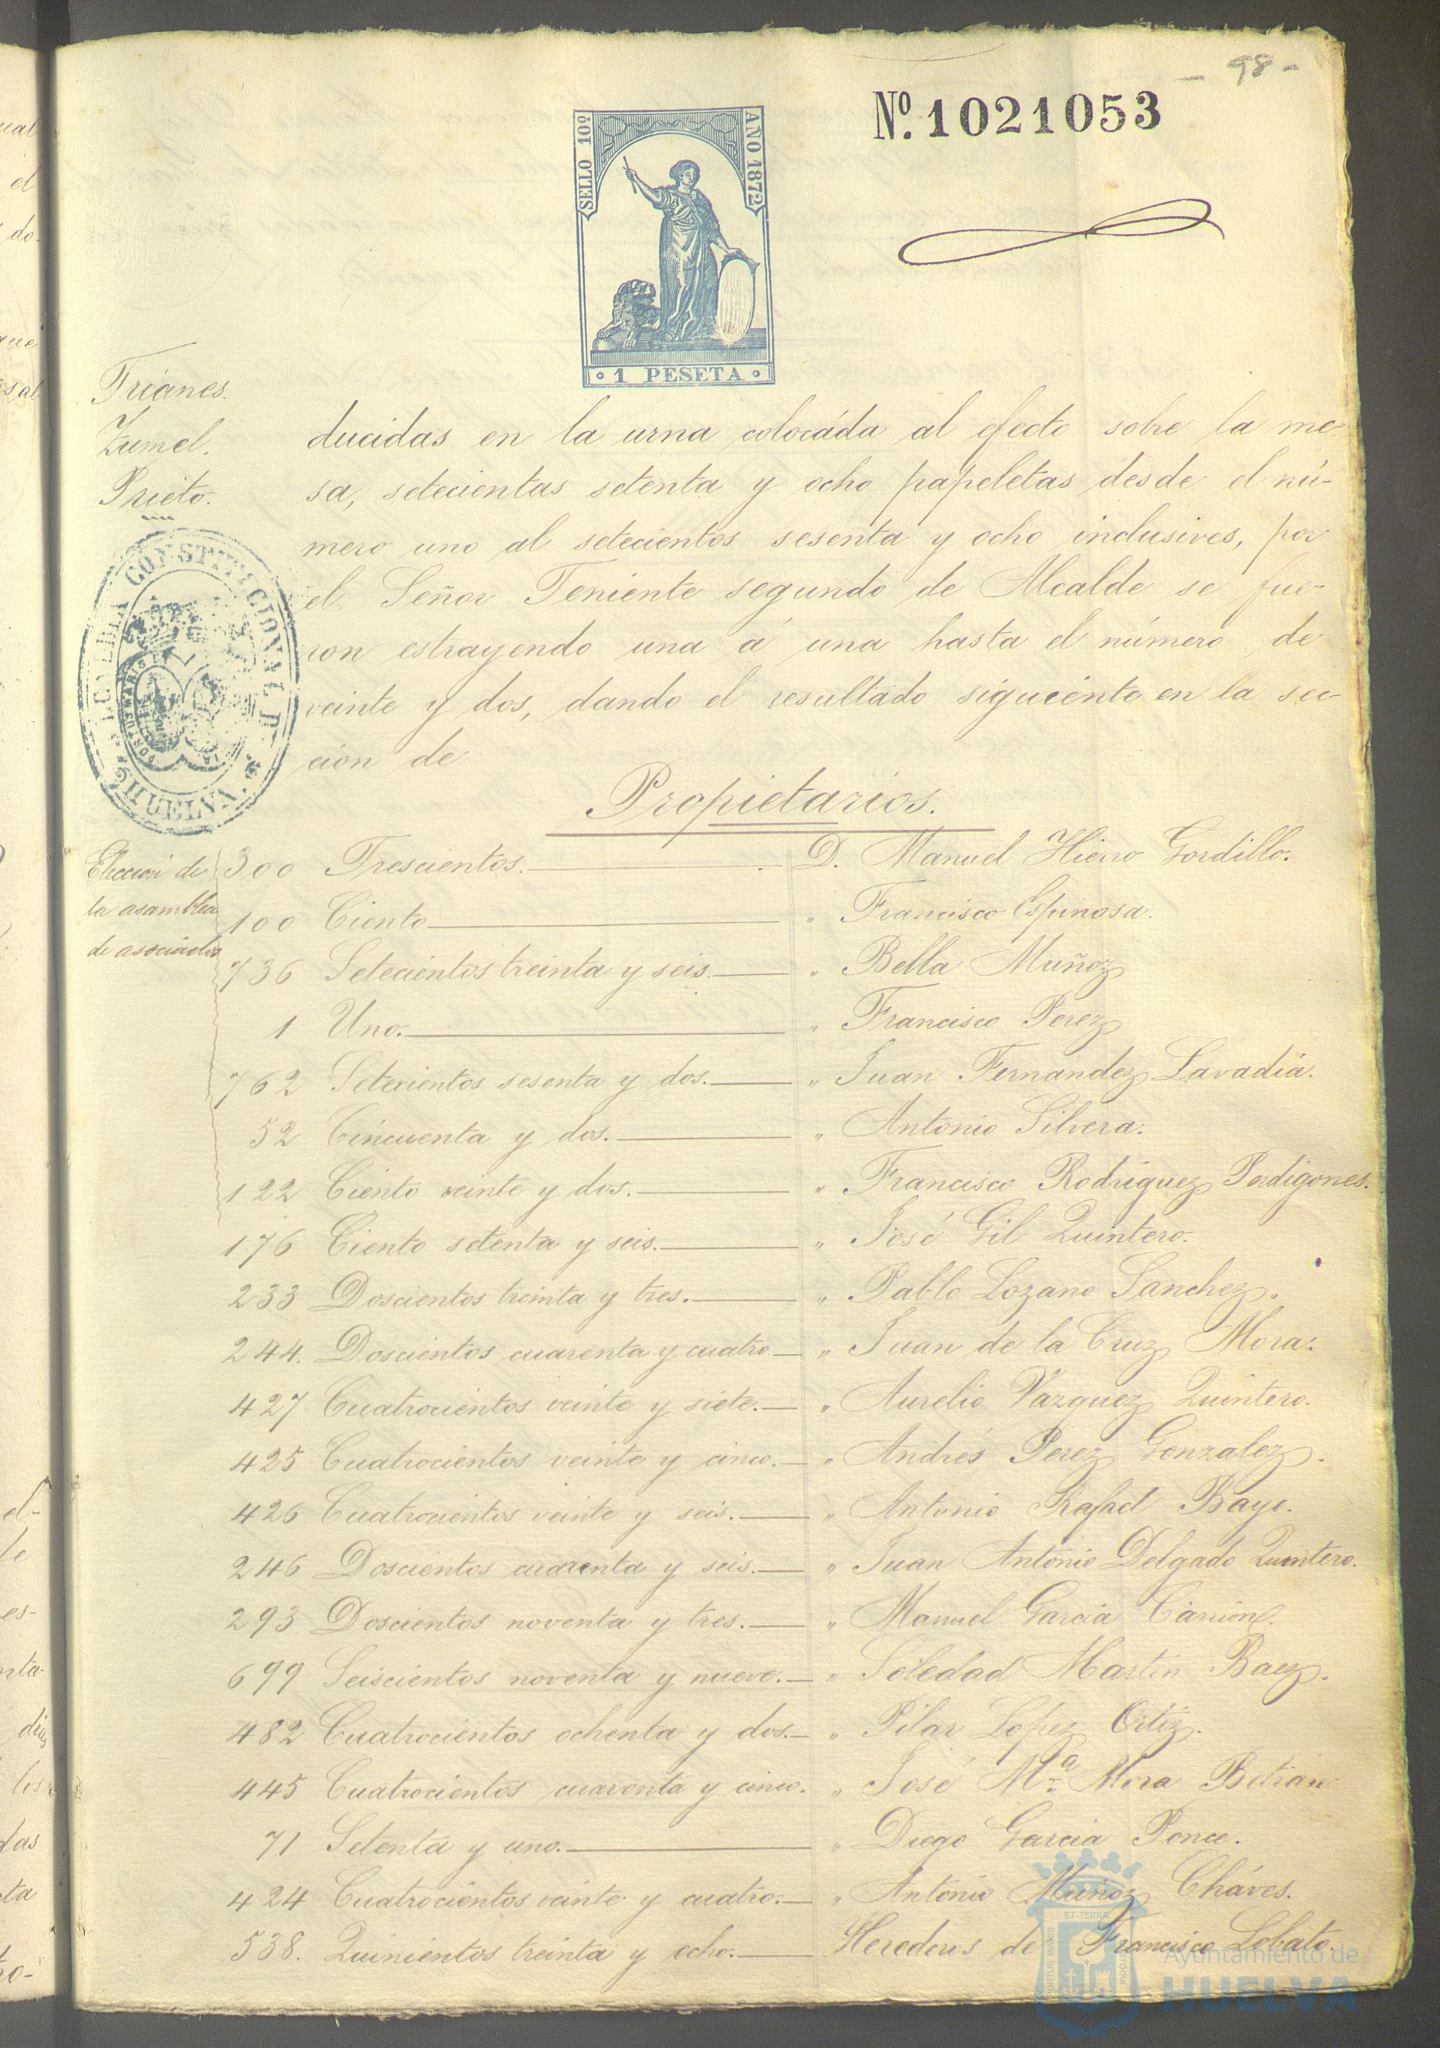 - 98 -
Nº. 1021053
SELLO 10º AÑO 1872
1 PESETA
Trianes.
Zumel.
Prieto.
ducidas en la urna colocáda al efecto sobre la me-
sa, setecientas setenta y ocho papeletas desde el nú-
mero uno al setecientos sesenta y ocho inclusives, por
el Señor Teniente segundo de Alcalde se fue-
ron estrayendo una á una hasta el número de
veinte y dos, dando el resultádo siguiente en la sec-
cion de
ALCALDIA CONSTITUCIONAL D
HUELVA.
Propietarios.
Eleccion de
la asamblea
de asociados
300 Trescientos. D. Manuel Hierro Gordillo.
100 Ciento " Francisco Espinosa.
736 Setecientos treinta y seis. " Bella Muñoz
1 Uno. " Francisco Perez
762 Setecientos sesenta y dos. " Juan Fernandez Lavadia.
52 Cincuenta y dos. " Antonio Silvera.
122 Ciento veinte y dos. " Francisco Rodriguez Perdigones.
176 Ciento setenta y seis. " José Gil Quintero.
233 Doscientos treinta y tres. " Pablo Lozano Sanchez.
244. Doscientos cuarenta y cuatro " Juan de la Cruz Mora.
427 Cuatrocientos veinte y siete. " Aurelio Vazquez Quintero.
425 Cuatrocientos veinte y cinco. " Andrés Perez Gonzalez.
426 Cuatrocientos veinte y seis. " Antonio Rafael Bayo.
246 Doscientos cuarenta y seis. " Juan Antonio Delgado Quintero.
293 Doscientos noventa y tres. " Manuel Garcia Carrion.
699 Seiscientos noventa y nueve. " Soledad Martin Baez.
482 Cuatrocientos ochenta y dos. " Pilar Lopez Ortiz.
445 Cuatrocientos cuarenta y cinco. " José Mª Mora Betrán
71 Setenta y uno. " Diego Garcia Ponce.
424 Cuatrocientos veinte y cuatro. " Antonio Muñoz Cháves.
538. Quinientos treinta y ocho. Herederos de Francisco Lobato.
Ayuntamiento de
HUELVA